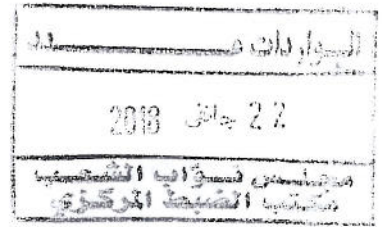 الواردات عـــــدد
22 جانفي 2018
مجلس نواب الشعب
مكتب الضبط المركزي